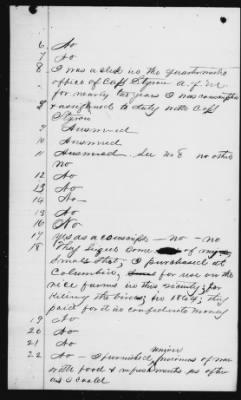 6 No
7 No
8 I was a clerk in the Quartermaster
office of Capt Styron A.Q.M.
for nearly two years I was conscripted
9 & assigned to duty with Capt
Styron
9 Answered
10 Answered
11 Answered. See no 8 no other
no
12 No
13 No
14 No
15 No
16 No
17 Was as a conscript — no — no
18 They liquor some of my
small shot; I purchased at
Columbia, for use on the
rice farms in this vicinity; for
killing the birds; in 1864; they
paid for it in confederate money
19 No
20 No
21 No
22 No — I furnished Union prisoners of war
with food & refreshments as often
as I could